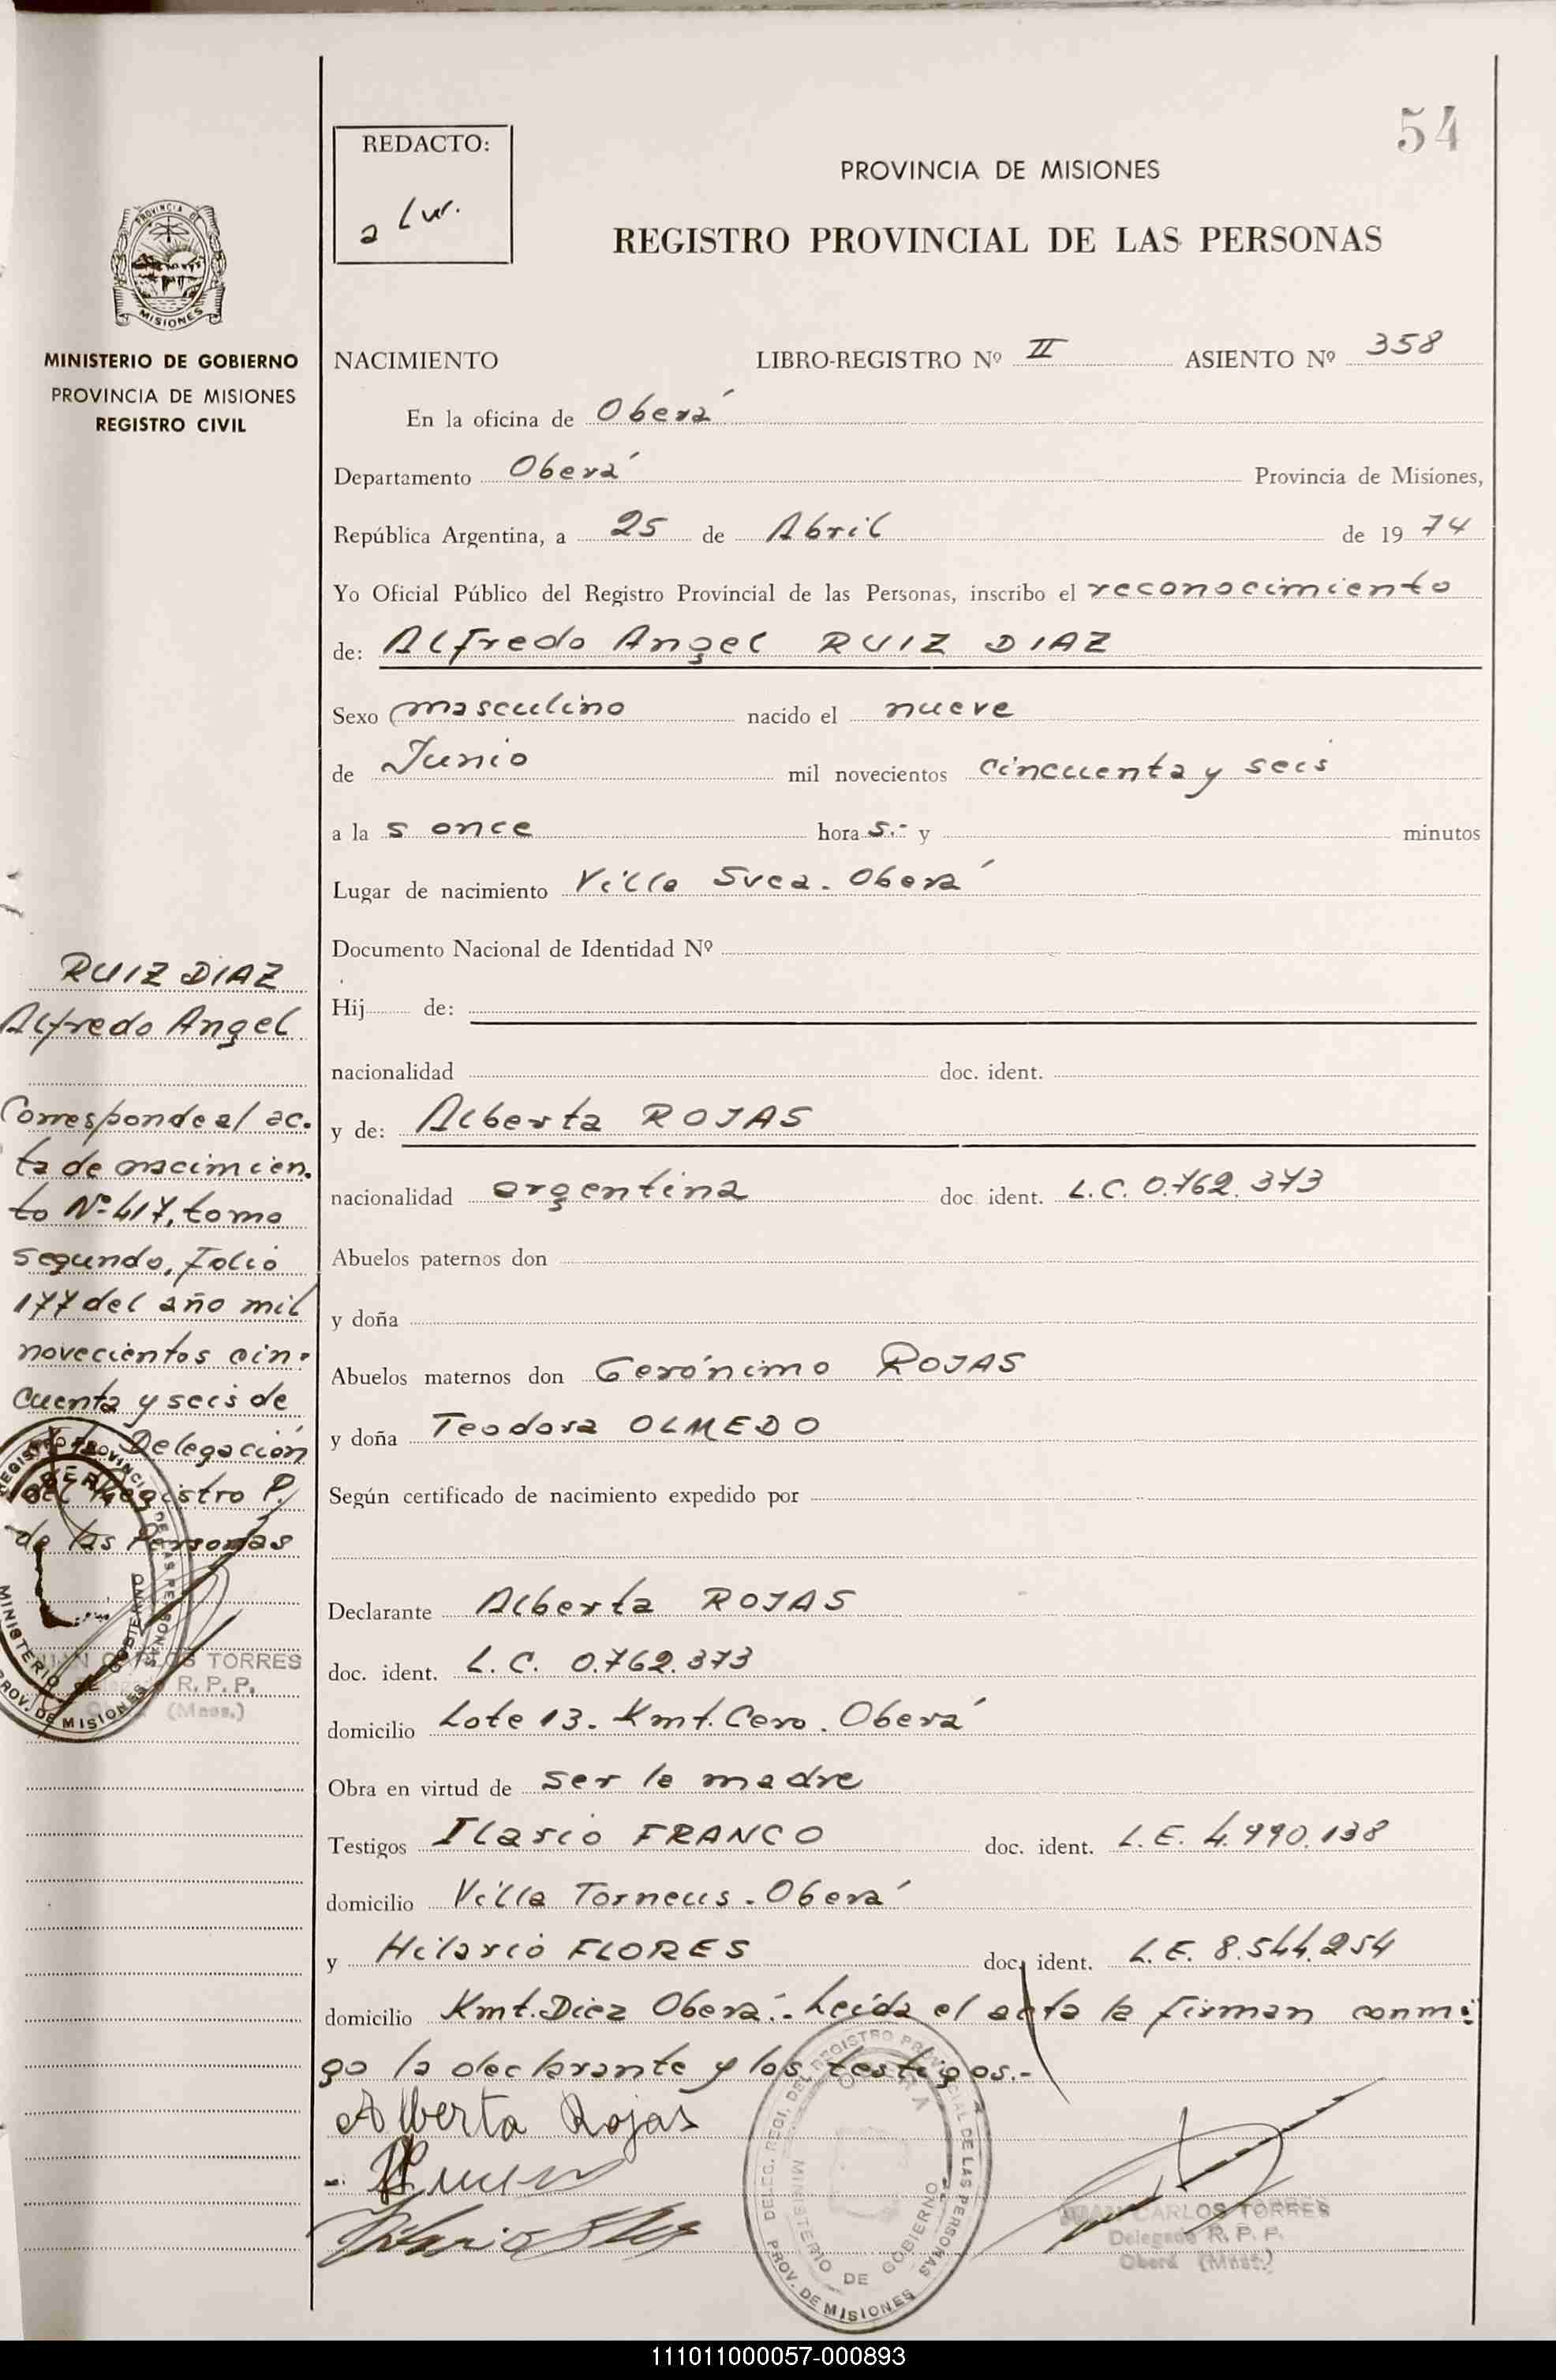 54
REDACTO:
PROVINCIA DE MISIONES
REGISTRO PROVINCIAL DE LAS PERSONAS
PROVINCIA DE
MISIONES
MINISTERIO DE GOBIERNO
PROVINCIA DE MISIONES
REGISTRO CIVIL
NACIMIENTO LIBRO-REGISTRO Nº II ASIENTO Nº 358
En la oficina de Oberá
Departamento Oberá Provincia de Misiones,
República Argentina, a 25 de Abril de 1974
Yo Oficial Público del Registro Provincial de las Personas, inscribo el reconocimiento
de: Alfredo Angel RUIZ DIAZ
Sexo masculino nacido el nueve
de Junio mil novecientos cincuenta y seis
a la s once hora s.- y minutos
Lugar de nacimiento Villa Svea. Oberá
Documento Nacional de Identidad Nº
Hij de:
nacionalidad doc. ident.
y de: Alberta ROJAS
nacionalidad argentina doc ident. L.C. 0.762.373
Abuelos paternos don
y doña
Abuelos maternos don Gerónimo ROJAS
y doña Teodora OLMEDO
Según certificado de nacimiento expedido por
Declarante Alberta ROJAS
doc. ident. L.C. 0.762.373
domicilio Lote 13. Kmt. Cero. Oberá
Obra en virtud de ser la madre
Testigos Ilario FRANCO doc. ident. L.E. 4.990.138
domicilio Villa Torneus. Oberá
y Hilario FLORES doc. ident. L.E. 8.544.254
domicilio Kmt. Diez Oberá.- Leída el acta la firman conmi
go la declarante y los testigos.-
Alberta Rojas
DELEG. REGI. DEL REGISTRO PROVINCIAL DE LAS PERSONAS
OBERA
MINISTERIO DE GOBIERNO
PROV. DE MISIONES
JUAN CARLOS TORRES
Delegado R. P. P.
Oberá (Mnes.)
RUIZ DIAZ
Alfredo Angel
Corresponde al ac.
ta de nacimien.
to Nº 417, tomo
segundo, Folio
177 del año mil
novecientos cin-
cuenta y seis de
Delegación
del Registro P.
de las Personas
JUAN CARLOS TORRES
R. P. P.
(Mnes.)
111011000057-000893